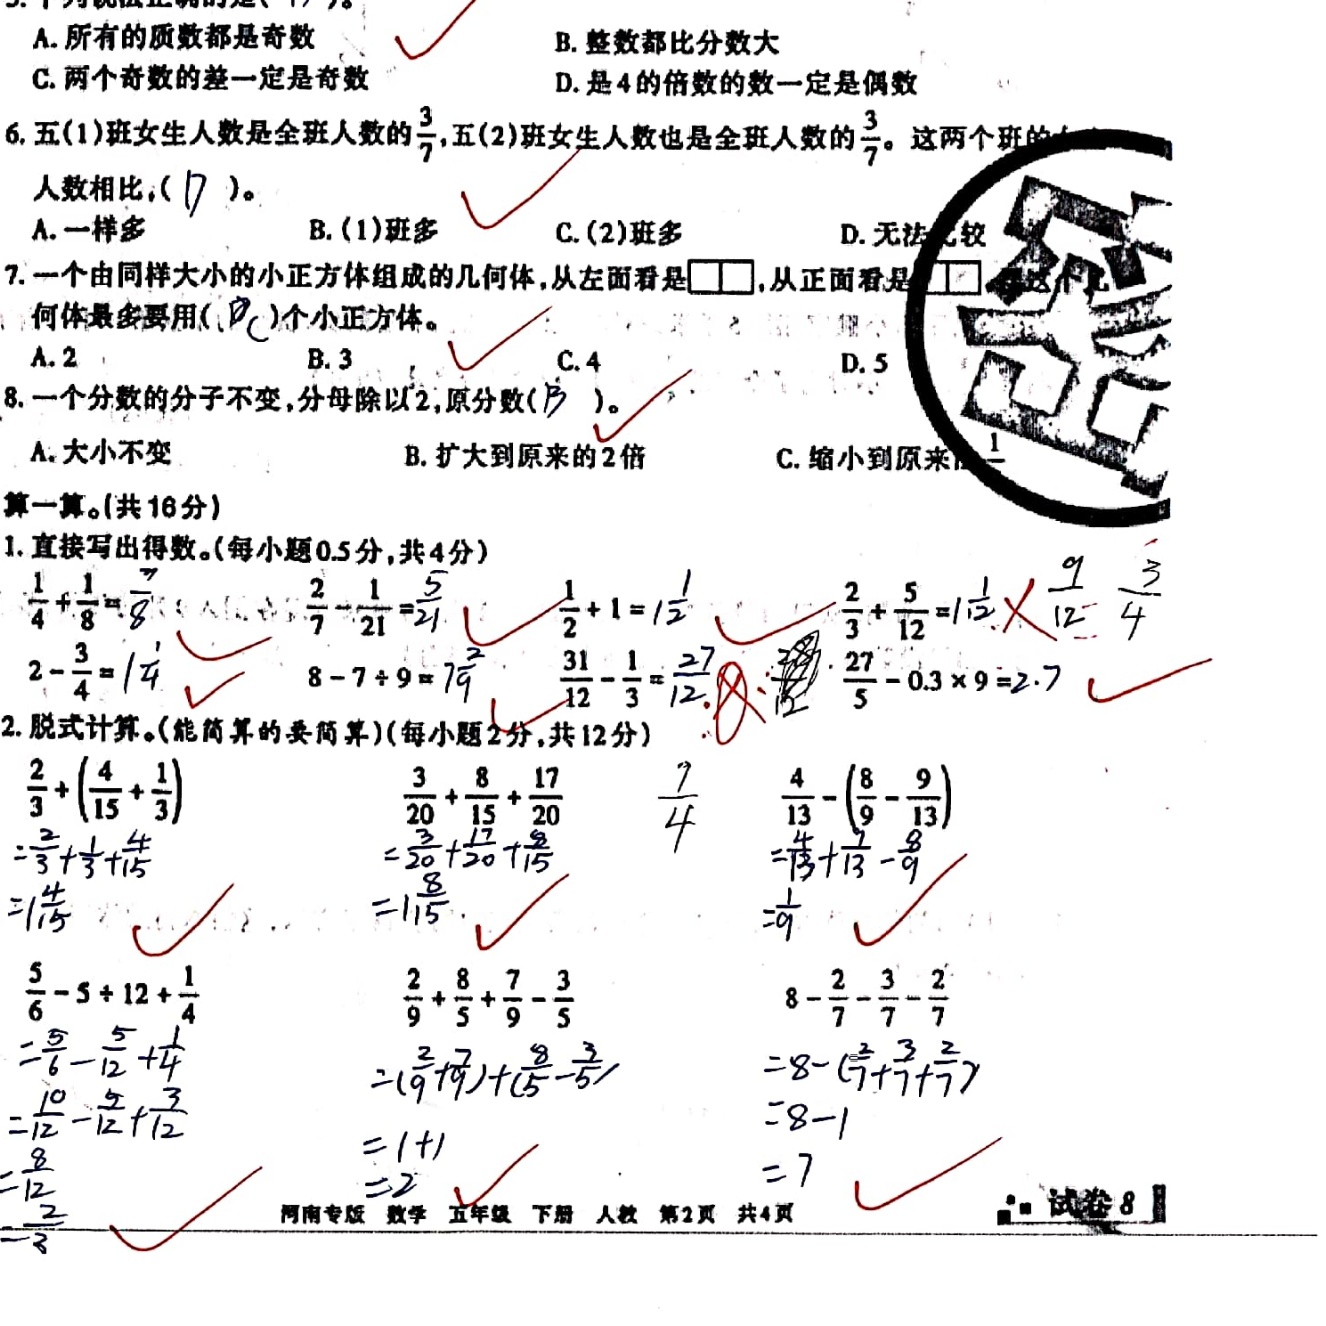 A. 所有的质数都是奇数 B. 整数都比分数大
C. 两个奇数的差一定是奇数 D. 是4的倍数的数一定是偶数
6. 五(1)班女生人数是全班人数的3/7,五(2)班女生人数也是全班人数的3/7。这两个班的
人数相比,( D )。
A. 一样多 B. (1)班多 C. (2)班多 D. 无法比较
7. 一个由同样大小的小正方体组成的几何体,从左面看是□□,从正面看是□□
何体最多要用( C )个小正方体。
A. 2 B. 3 C. 4 D. 5
8. 一个分数的分子不变,分母除以2,原分数( B )。
A. 大小不变 B. 扩大到原来的2倍 C. 缩小到原来
算一算。(共16分)
1. 直接写出得数。(每小题0.5分,共4分)
1/4 + 1/8 = 3/8 2/7 - 1/21 = 5/21 1/2 + 1 = 1 1/2 2/3 + 5/12 = 1 1/12 9/12 = 3/4
2 - 3/4 = 1 1/4 8 - 7 ÷ 9 = 7 2/9 31/12 - 1/3 = 27/12 27/5 - 0.3 × 9 = 2.7
2. 脱式计算。(能简算的要简算)(每小题2分,共12分)
2/3 + (4/15 + 1/3) 3/20 + 8/15 + 17/20 9/4 4/13 - (8/9 - 9/13)
= 2/3 + 1/3 + 4/15 = 3/20 + 17/20 + 8/15 = 4/13 + 9/13 - 8/9
= 1 4/15 = 1 8/15 = 1/9
5/6 - 5 ÷ 12 + 1/4 2/9 + 8/5 + 7/9 - 3/5 8 - 2/7 - 3/7 - 2/7
= 5/6 - 5/12 + 1/4 = (2/9 + 7/9) + (8/5 - 3/5) = 8 - (2/7 + 3/7 + 2/7)
= 10/12 - 5/12 + 3/12 = 1 + 1 = 8 - 1
= 8/12 = 2 = 7
= 2/3
河南专版 数学 五年级 下册 人教 第2页 共4页 试卷 8